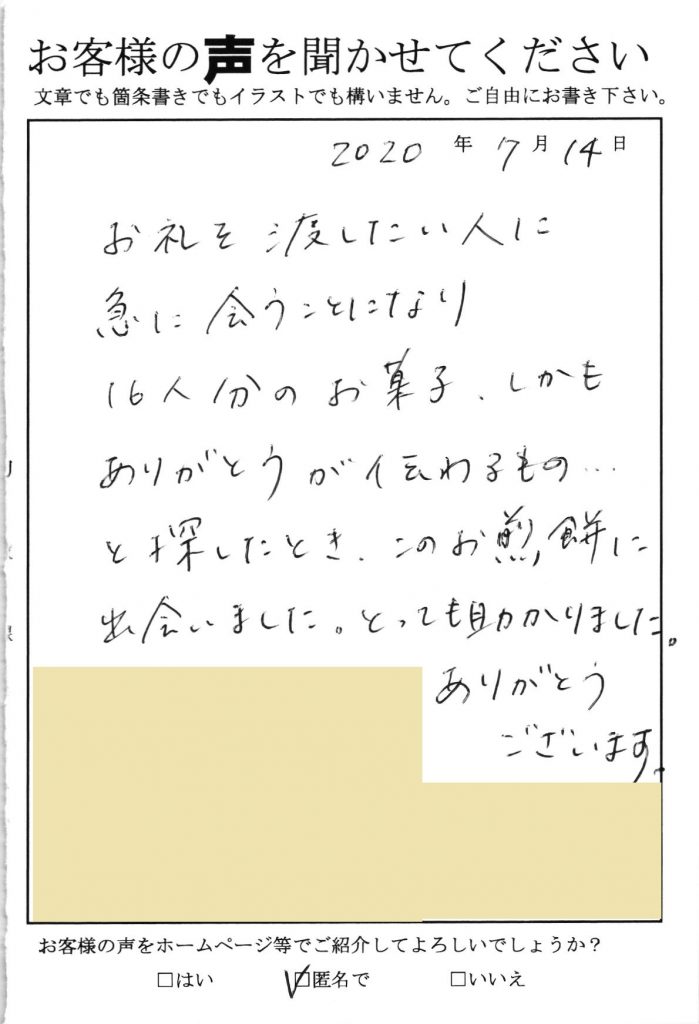 お客様の声を聞かせてください
文章でも箇条書きでもイラストでも構いません。ご自由にお書き下さい。
2020年7月14日
お礼を渡したい人に
急に会うことになり
16人分のお菓子、しかも
ありがとうが伝わるもの…
と探したとき、このお煎餅に
出会いました。とっても助かりました。
ありがとう
ございます。
お客様の声をホームページ等でご紹介してよろしいでしょうか？
□はい ☑匿名で □いいえ